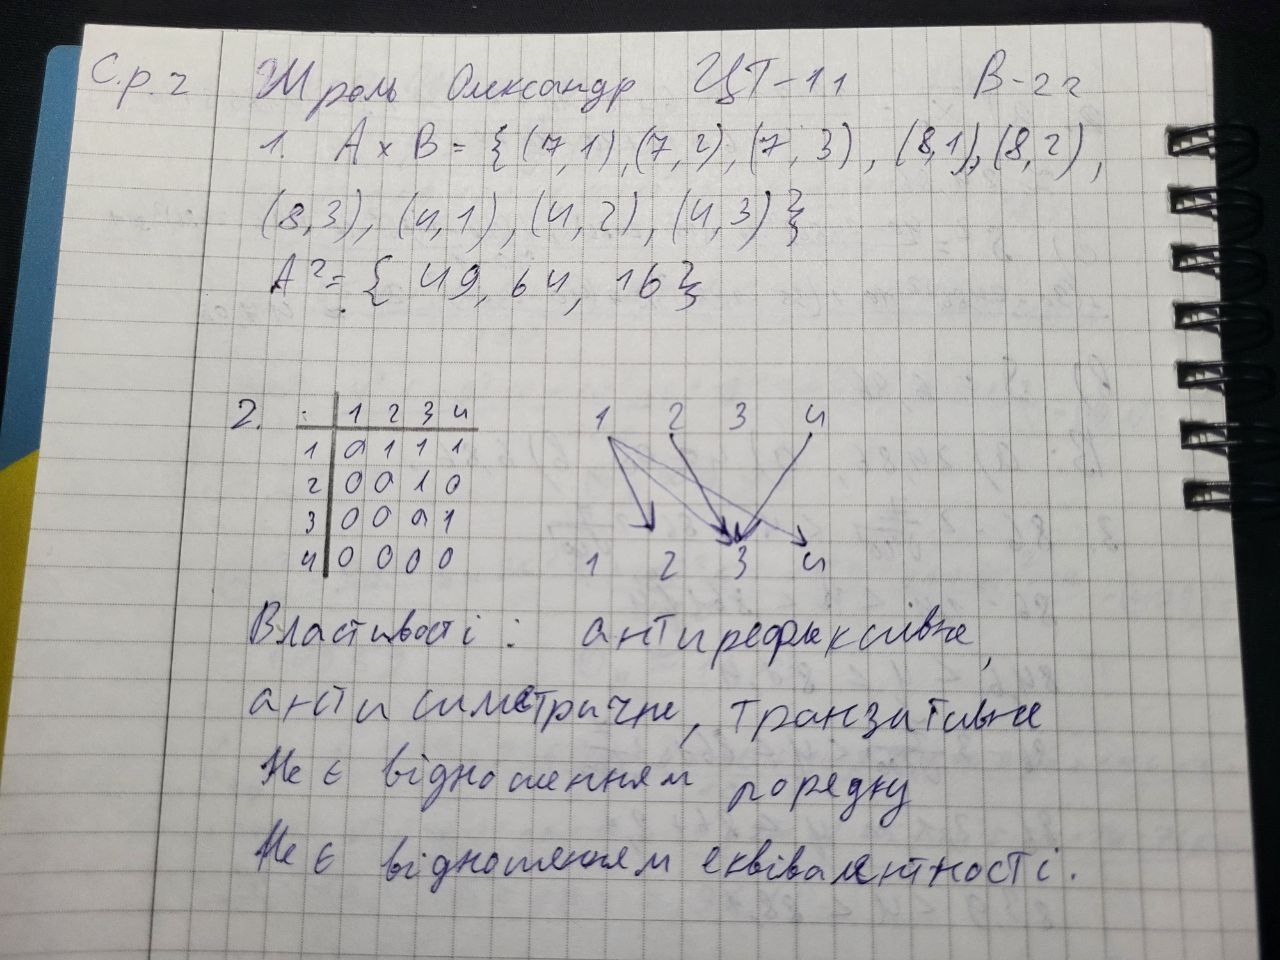 С.р. 2 Шроль Олександр ЦТ-11 В-22
1. A × B = {(7,1), (7,2), (7,3), (8,1), (8,2),
(8,3), (4,1), (4,2), (4,3)}
A² = { 49, 64, 16}
2. . 1 2 3 4
1 0 1 1 1
2 0 0 1 0
3 0 0 0 1
4 0 0 0 0
1 2 3 4
1 2 3 4
Властивості: антирефлексивне,
антисиметричне, транзитивне
Не є відношенням порядку
Не є відношенням еквівалентності.